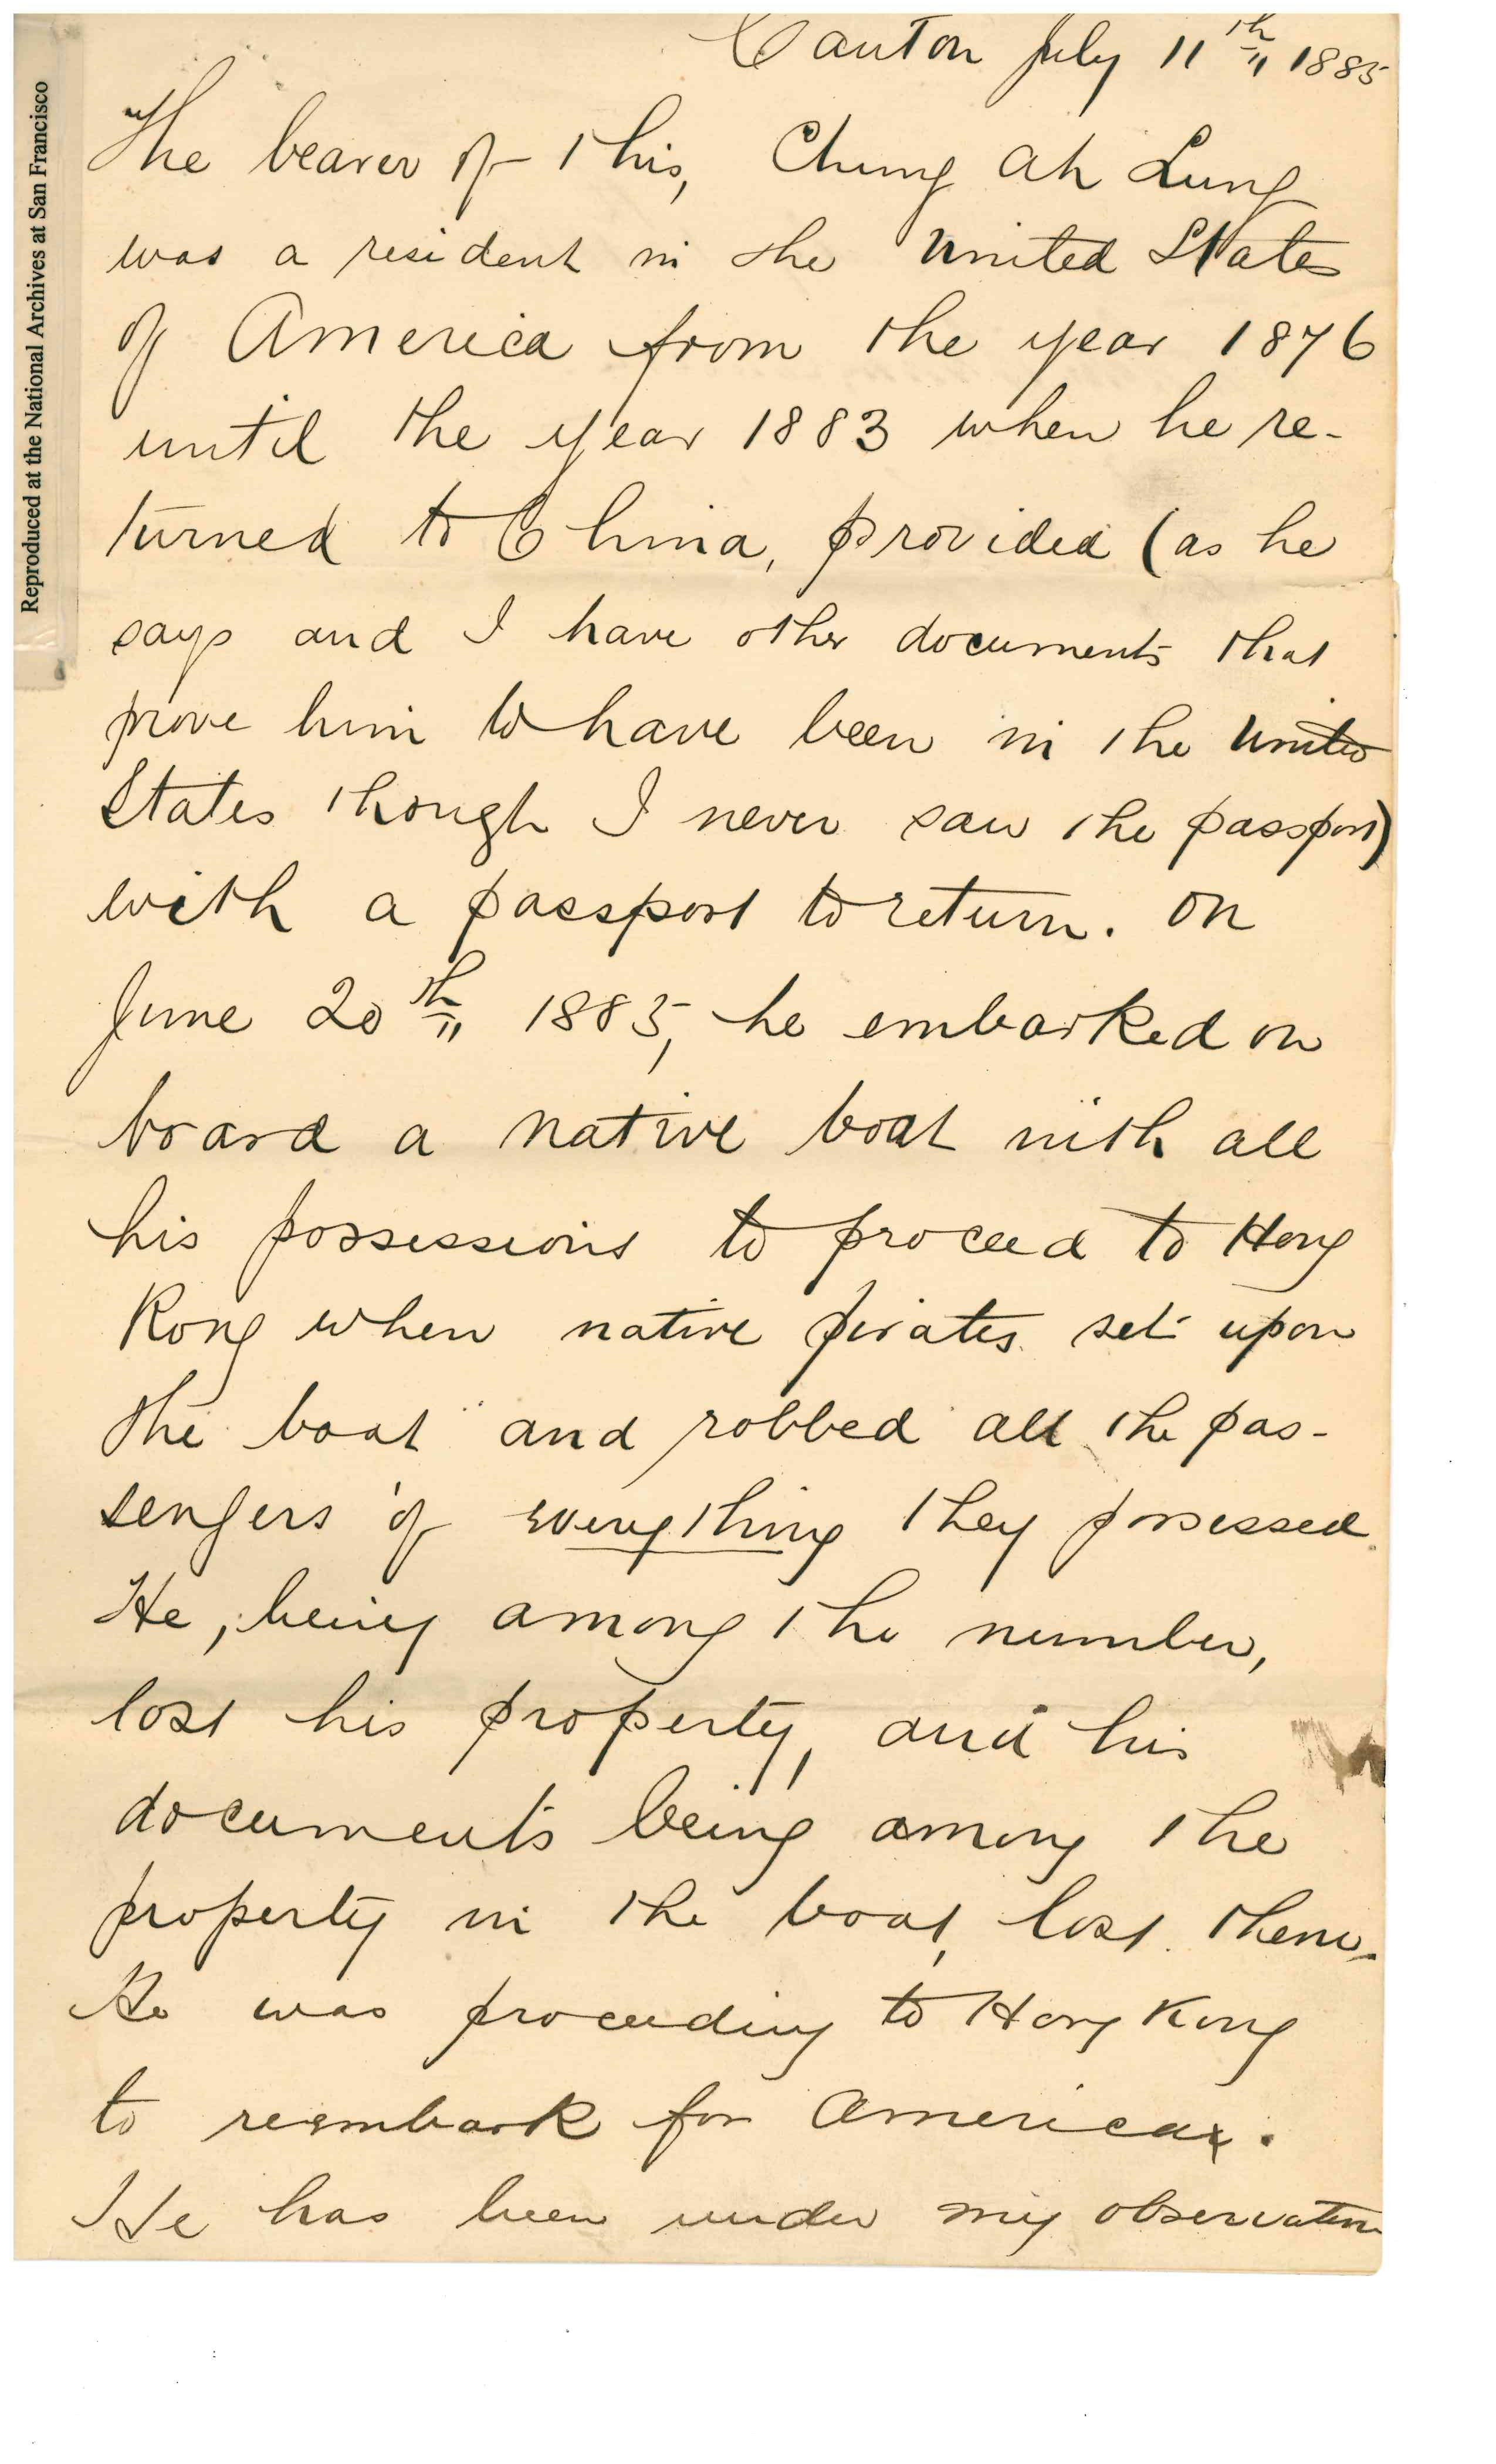 Reproduced at the National Archives at San Francisco
Canton July 11th 1885
The bearer of this, Chung Ah Lung
was a resident in the United States
of America from the year 1876
until the year 1883 when he re-
turned to China, provided (as he
says and I have other documents that
prove him to have been in the United
States though I never saw the passport)
with a passport to return. On
June 20th 1885, he embarked on
board a native boat with all
his possessions to proceed to Hong
Kong when native pirates set upon
the boat and robbed all the pas-
sengers of everything they possessed.
He, being among the number,
lost his property, and his
documents being among the
property in the boat, lost them.
He was proceeding to Hong Kong
to reembark for America.
He has been under my observation